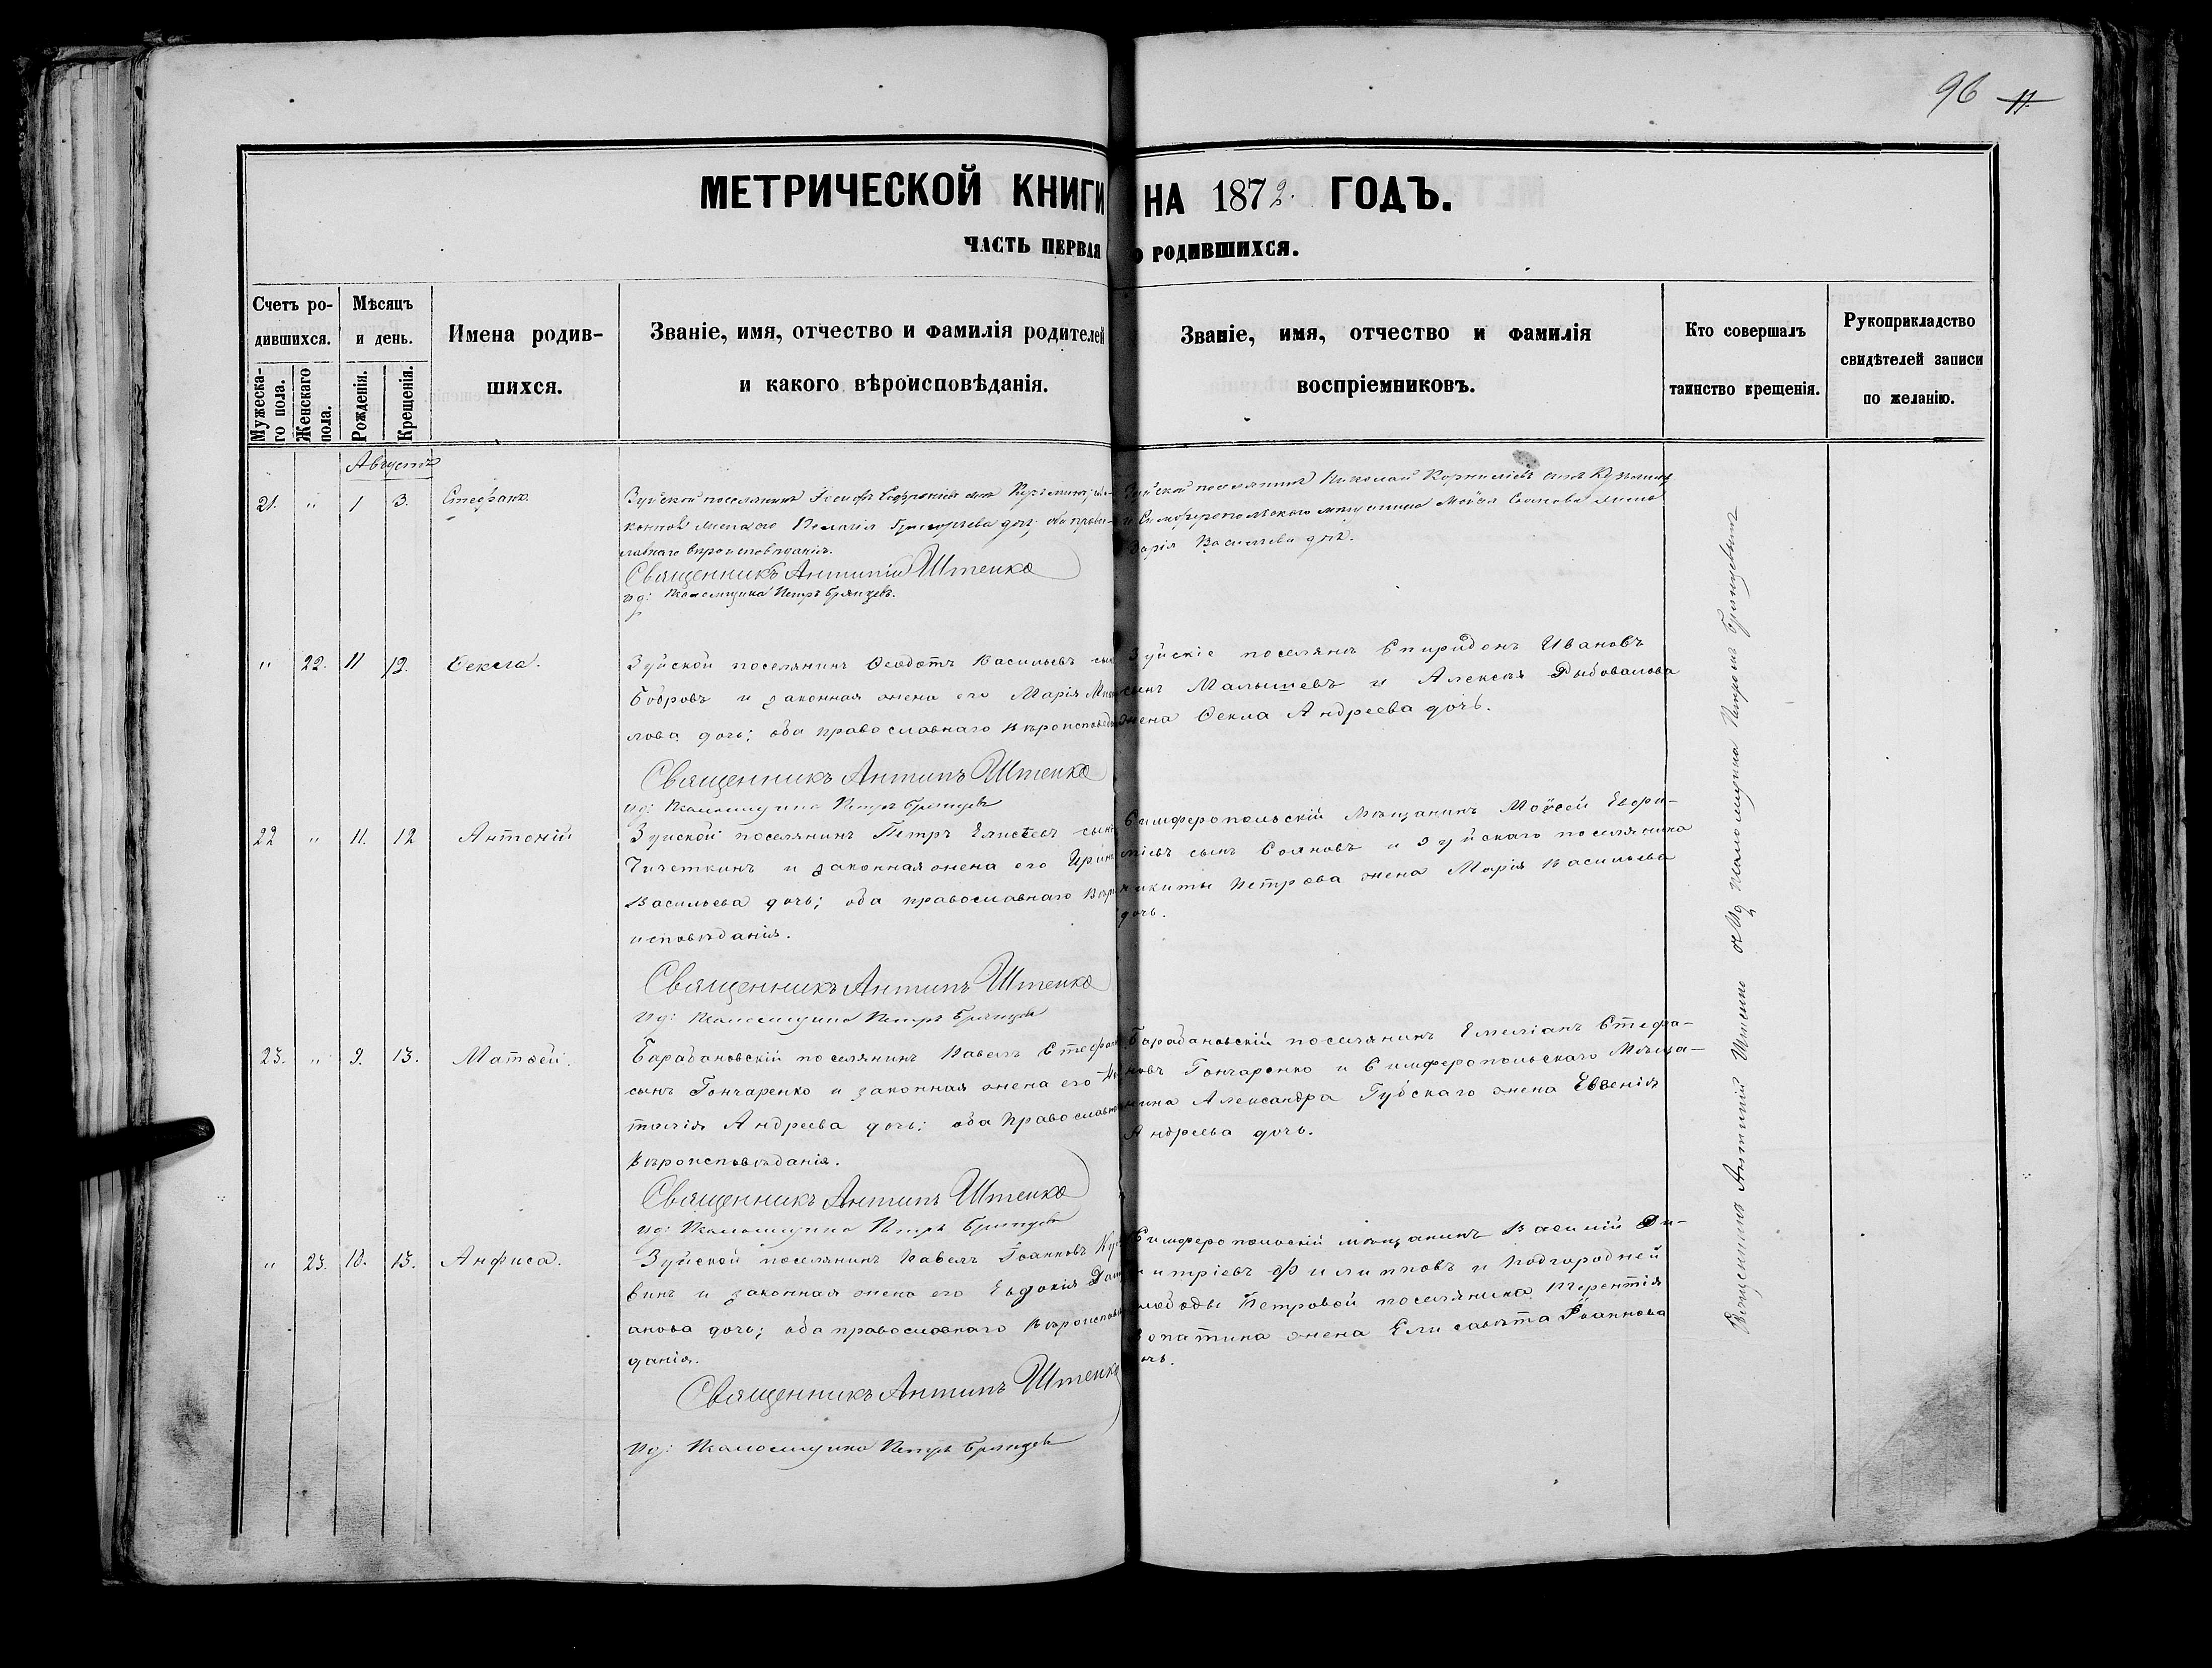 96 11
МЕТРИЧЕСКОЙ КНИГИ НА 1872. ГОДЪ.
ЧАСТЬ ПЕРВАЯ О РОДИВШИХСЯ.
Счетъ ро-
дившихся.
Мужеска-
го пола.
Женскаго
пола.
Мѣсяцъ
и день.
Рожденія.
Крещенія.
Имена родив-
шихся.
Званіе, имя, отчество и фамилія родителей
и какого вѣроисповѣданія.
Званіе, имя, отчество и фамилія
воспріемниковъ.
Кто совершалъ
таинство крещенія.
Рукоприкладство
свидѣтелей записи
по желанію.
Августъ
21. " 1 3. Стефанъ.
Зуйской поселянинъ
Пелагія Григорьева доч; оба право-
славнаго вѣроисповѣданія.
Священникъ Антипій Штенко
ид: Псаломщика Петръ Брянцевъ.
Зуйской поселянинъ Николай Корнилiевъ сынъ
и Симферопольскаго мѣщанина Моѵсея Соянова жена
Марія Васильева доч.
" 22. 11 12. Ѳекла.
Зуйской поселянинъ Ѳеодотъ Васильевъ сын
Бобровъ и законная жена его Марія Михай
лова дочь; оба православнаго вѣроисповѣд
Священникъ Антипъ Штенко
ид: Псаломщика Петръ Брянцевъ
Зуйскіе поселяне Спиридонъ Ивановъ
сынъ Малышевъ и Алексѣя Рыбовалова
жена Ѳекла Андреева дочь.
22 " 11. 12 Антоній
Зуйской поселянинъ Петръ Елисѣевъ сынъ
Чичеткинъ и законная жена его Ирин
Васильева дочь; оба православнаго вѣро
исповѣданія.
Священникъ Антипъ Штенко
ид: Псаломщика Петръ Брянцевъ
Симферопольскій мѣщанинъ Моѵсей Евфи-
міевъ сынъ Сояновъ и Зуйскаго поселянина
Никиты Петрова жена Марія Васильева
дочь.
23. " 9. 13. Матѳей.
Барабановскій поселянинъ Павелъ Стефан
сынъ Гончаренко и законная жена его На
талія Андреева дочь; оба православн
вѣроисповѣданія.
Священникъ Антипъ Штенко
ид: Псаломщика Петръ Брянцевъ
Барабановскій поселянинъ Емеліанъ Стефа-
новъ Гончаренко и Симферопольскаго мѣща-
нина Александра Губскаго жена Евгенія
Андреева дочь.
" 23. 10. 13. Анфиса.
Зуйской поселянинъ Павелъ Іоанновъ
винъ и законная жена его Евдокія Дам
анова дочь; оба православнаго вѣроисповѣ
данія.
Священникъ Антипъ Штенко
ид: Псаломщика Петръ Брянцевъ
Симферопольскій мѣщанинъ Василій Ди-
митріевъ Филипповъ и подгородней
слободы Петровой поселянина Терентія
Лопатина жена Елисавета Іоаннова
дочь.
Священникъ Антипій Штенко съ ид псаломщика Петромъ Брянцевымъ